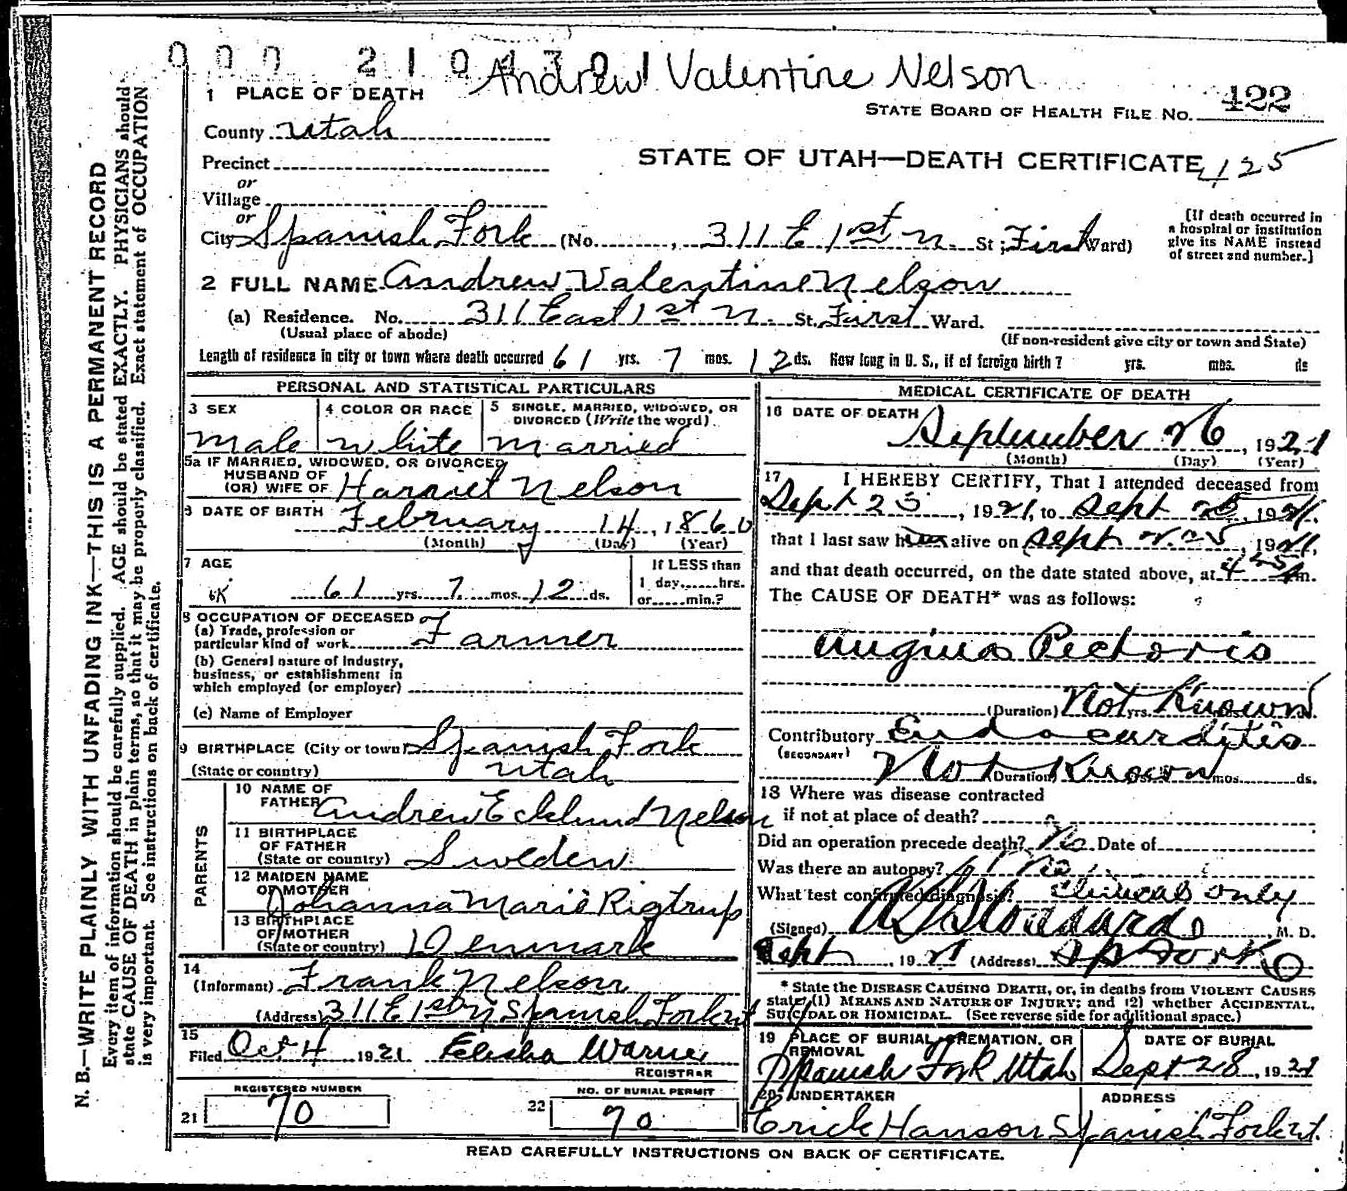 000 2104301
Andrew Valentine Nelson
1 PLACE OF DEATH
STATE BOARD OF HEALTH FILE NO. 422
County Utah
STATE OF UTAH—DEATH CERTIFICATE 425
Precinct
or
Village
or
City Spanish Fork (No. , 311 E 1st N St ; First Ward)
[If death occurred in
a hospital or institution
give its NAME instead
of street and number.]
2 FULL NAME Andrew Valentine Nelson
(a) Residence. No. 311 East 1st N. St. First Ward.
(Usual place of abode)
(If non-resident give city or town and State)
Length of residence in city or town where death occurred 61 yrs. 7 mos. 12 ds. How long in U. S., if of foreign birth? yrs. mos. ds
PERSONAL AND STATISTICAL PARTICULARS
3 SEX
Male
4 COLOR OR RACE
White
5 SINGLE, MARRIED, WIDOWED, OR
DIVORCED (Write the word)
Married
5a IF MARRIED, WIDOWED, OR DIVORCED
HUSBAND OF
(OR) WIFE OF Harriet Nelson
6 DATE OF BIRTH February 14, 1860
(Month) (Day) (Year)
7 AGE
61 yrs. 7 mos. 12 ds.
If LESS than
1 day,......hrs.
or......min.?
8 OCCUPATION OF DECEASED
(a) Trade, profession or
particular kind of work Farmer
(b) General nature of Industry,
business, or establishment in
which employed (or employer)
(c) Name of Employer
9 BIRTHPLACE (City or town) Spanish Fork
(State or country) Utah
PARENTS
10 NAME OF
FATHER Andrew Ecklund Nelson
11 BIRTHPLACE
OF FATHER
(State or country) Sweden
12 MAIDEN NAME
OF MOTHER
Johanna Marie Rigtrup
13 BIRTHPLACE
OF MOTHER
(State or country) Denmark
14
(Informant) Frank Nelson
(Address) 311 E 1st N Spanish Fork ut
15
Filed Oct 4 1921 Elisha Warner
REGISTRAR
REGISTERED NUMBER
21 70
NO. OF BURIAL PERMIT
22 70
MEDICAL CERTIFICATE OF DEATH
16 DATE OF DEATH September 26, 1921
(Month) (Day) (Year)
17 I HEREBY CERTIFY, That I attended deceased from
Sept 23, 1921, to Sept 25, 1921,
that I last saw him alive on Sept 25, 1921,
and that death occurred, on the date stated above, at 4 25 Am.
The CAUSE OF DEATH* was as follows:
Angina Pectoris
(Duration) Not yrs. Known ds.
Contributory Endocarditis
(SECONDARY)
Not (Duration) Known mos. ds.
18 Where was disease contracted
if not at place of death?
Did an operation precede death? No Date of
Was there an autopsy? No
What test confirmed diagnosis? Clinical only
(Signed) Stoddard, M. D.
Sept , 1921 (Address) Sp Fork
* State the DISEASE CAUSING DEATH, or, in deaths from VIOLENT CAUSES
state (1) MEANS AND NATURE OF INJURY; and (2) whether ACCIDENTAL,
SUICIDAL OR HOMICIDAL. (See reverse side for additional space.)
19 PLACE OF BURIAL, CREMATION, OR
REMOVAL
Spanish Fork Utah
DATE OF BURIAL
Sept 28, 1921
20 UNDERTAKER
Erick Hanson
ADDRESS
Spanish Fork ut.
READ CAREFULLY INSTRUCTIONS ON BACK OF CERTIFICATE.
N. B.—WRITE PLAINLY WITH UNFADING INK—THIS IS A PERMANENT RECORD
Every item of information should be carefully supplied. AGE should be stated EXACTLY. PHYSICIANS should
state CAUSE OF DEATH in plain terms, so that it may be properly classified. Exact statement of OCCUPATION
is very important. See instructions on back of certificate.